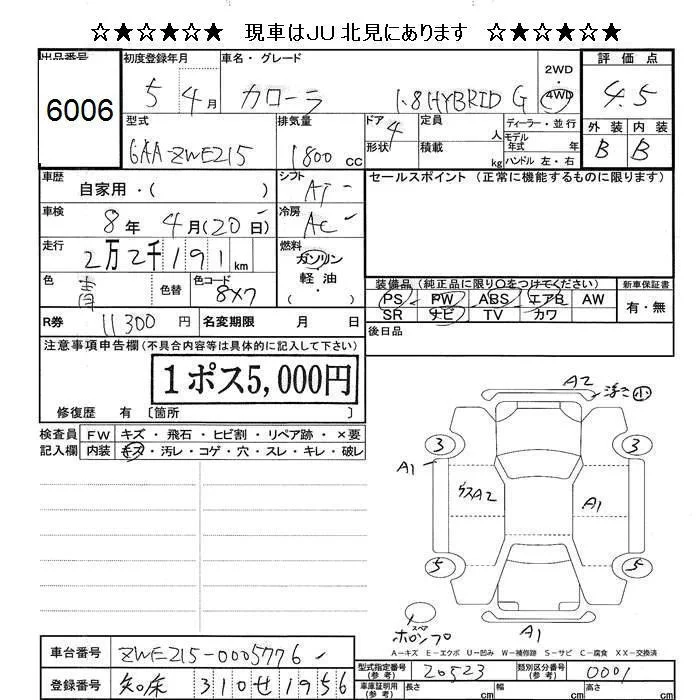 ☆★☆★☆★ 現車はJU北見にあります ☆★☆★☆★
出品番号 初度登録年月 車名・グレード 2WD・4WD 評価点
6006 5 4月 カローラ 1.8HYBRID G 4.5
型式 排気量 ドア 4 定員 人 ディーラー・並行 外装 内装
6AA-ZWE215 1800 cc 形状 積載 kg モデル年式 年式 B B
ハンドル 左・右
車歴 自家用・( ) シフト AT セールスポイント (正常に機能するものに限ります)
車検 8年 4月(20日) 冷房 AC
走行 2万2千191km 燃料 ガソリン
色 青 色替 色コード 8X7 軽油
( )
装備品(純正品に限り〇をつけてください) 新車保証書
PS PW ABS エアB AW 有・無
R券 11300円 名変期限 月 日 SR ナビ TV カワ
注意事項申告欄(不具合内容等は具体的に記入して下さい) 後日品
1ポス5,000円
修復歴 有 〔箇所 〕
検査員 FW キズ・飛石・ヒビ割・リペア跡・×要
記入欄 内装 キズ・汚レ・コゲ・穴・スレ・キレ・破レ
A2 小
3 3
A1
A2 A1
5 5
スペア
A1
A-キズ E-エクボ U-凹み W-補修跡 S-サビ C-腐食 XX-交換済
車台番号 ZWE215-0005776 型式指定番号(参考) 20523 類別区分番号(参考) 0001
登録番号 知床 310 せ 1956 車庫証明用(参考) 長さ cm 幅 cm 高さ cm